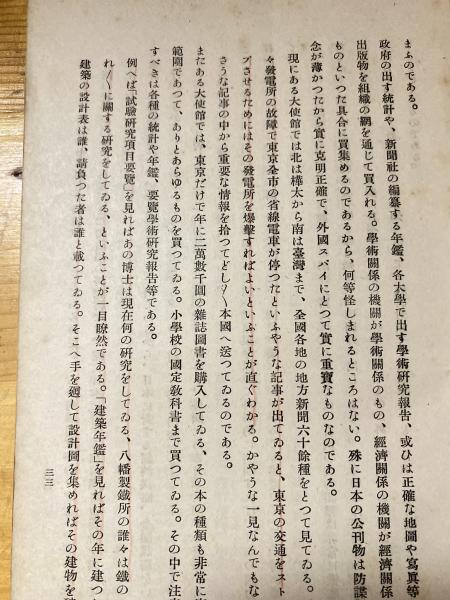 まふのである。
政府の出す統計や、新聞社の編纂する年鑑、各大學で出す學術研究報告、或ひは正確な地圖や寫眞等
出版物を組織の網を通じて買入れる。學術關係の機關が學術關係のもの、經濟關係の機關が經濟關係
ものといつた具合に買集めるのであるから、何等怪しまれるところはない。殊に日本の公刊物は防諜
念が薄かつたから實に克明正確で、外國スパイにとつて實に重寶なものなのである。
現にある大使館では北は樺太から南は臺灣まで、全國各地の地方新聞六十餘種をとつて見てゐる。
々發電所の故障で東京全市の省線電車が停つたといふやうな記事が出てゐると、東京の交通をスト
プさせるためにはその發電所を爆擊すればよいといふことが直ぐわかる。かやうな一見なんでもな
さうな記事の中から重要な情報を拾つてどし〳〵本國へ送つてゐるのである。
またある大使館では、東京だけで年に二萬數千圓の雜誌圖書を購入してゐる、その本の種類も非常に
範圍であつて、ありとあらゆるものを買つてゐる。小學校の國定敎科書まで買つてゐる。その中で注
すべきは各種の統計や年鑑、要覽學術研究報告等である。
例へば「試驗研究項目要覽」を見ればあの博士は現在何の研究をしてゐる、八幡製鐵所の誰々は鐵の
れ〳〵に關する研究をしてゐる、といふことが一目瞭然である。「建築年鑑」を見ればその年に建つ
建築の設計表は誰、請負つた者は誰と載つてゐる。そこへ手を廻して設計圖を集めればその建物を
三三